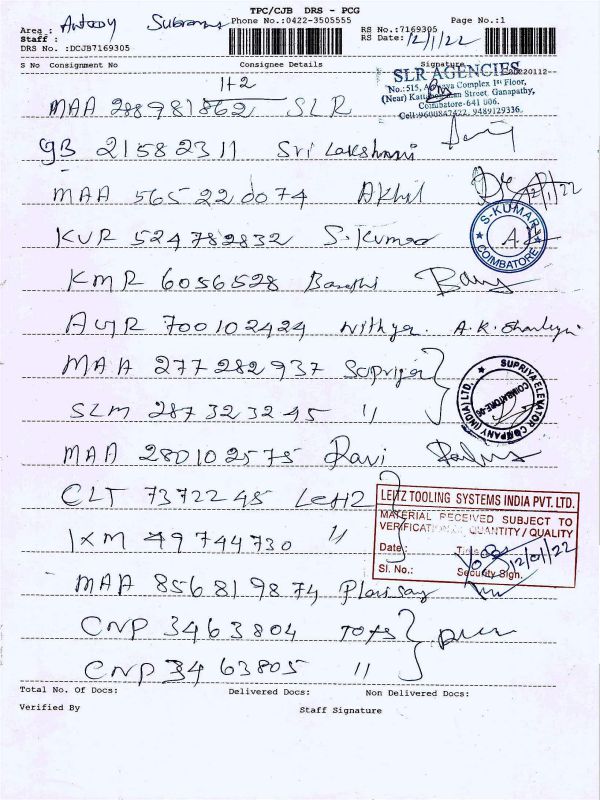 TPC/CJB DRS - PCG
Area : Antody
Phone No.:0422-3505555
Page No.:1
Staff :
RS No.:7169305
DRS No. :DCJB7169305
RS Date: 12/1/22
S No Consignment No Consignee Details Signature
SLR AGENCIES
No.: 515, Complex 1st Floor,
(Near) Street, Ganapathy,
Coimbatore-641 006.
Cell:9600847422, 9489129336.
1+2
MAA 288981862 SLR
GB 21582311 Sri Lakshmi
MAA 565220074 Akhil
KUR 524782832 S. Kumar
S-KUMAR
COIMBATORE
KMR 6056528
AWR 700102424 Nithya.
MAA 277282937 Supriya
SLM 287323245 "
SUPRIYA ELEVATOR COMPANY (INDIA) LTD.
COIMBATORE-06
MAA 280102575 Ravi
CLT 7372245 Leitz
IXM 49744730 "
LEITZ TOOLING SYSTEMS INDIA PVT. LTD.
MATERIAL RECEIVED SUBJECT TO
VERIFICATION QUANTITY / QUALITY
Date :
12/01/22
Sl. No.: Security Sign.
MAA 856819874
CNP 3463804
CNP 3463805 "
Total No. Of Docs: Delivered Docs: Non Delivered Docs:
Verified By Staff Signature